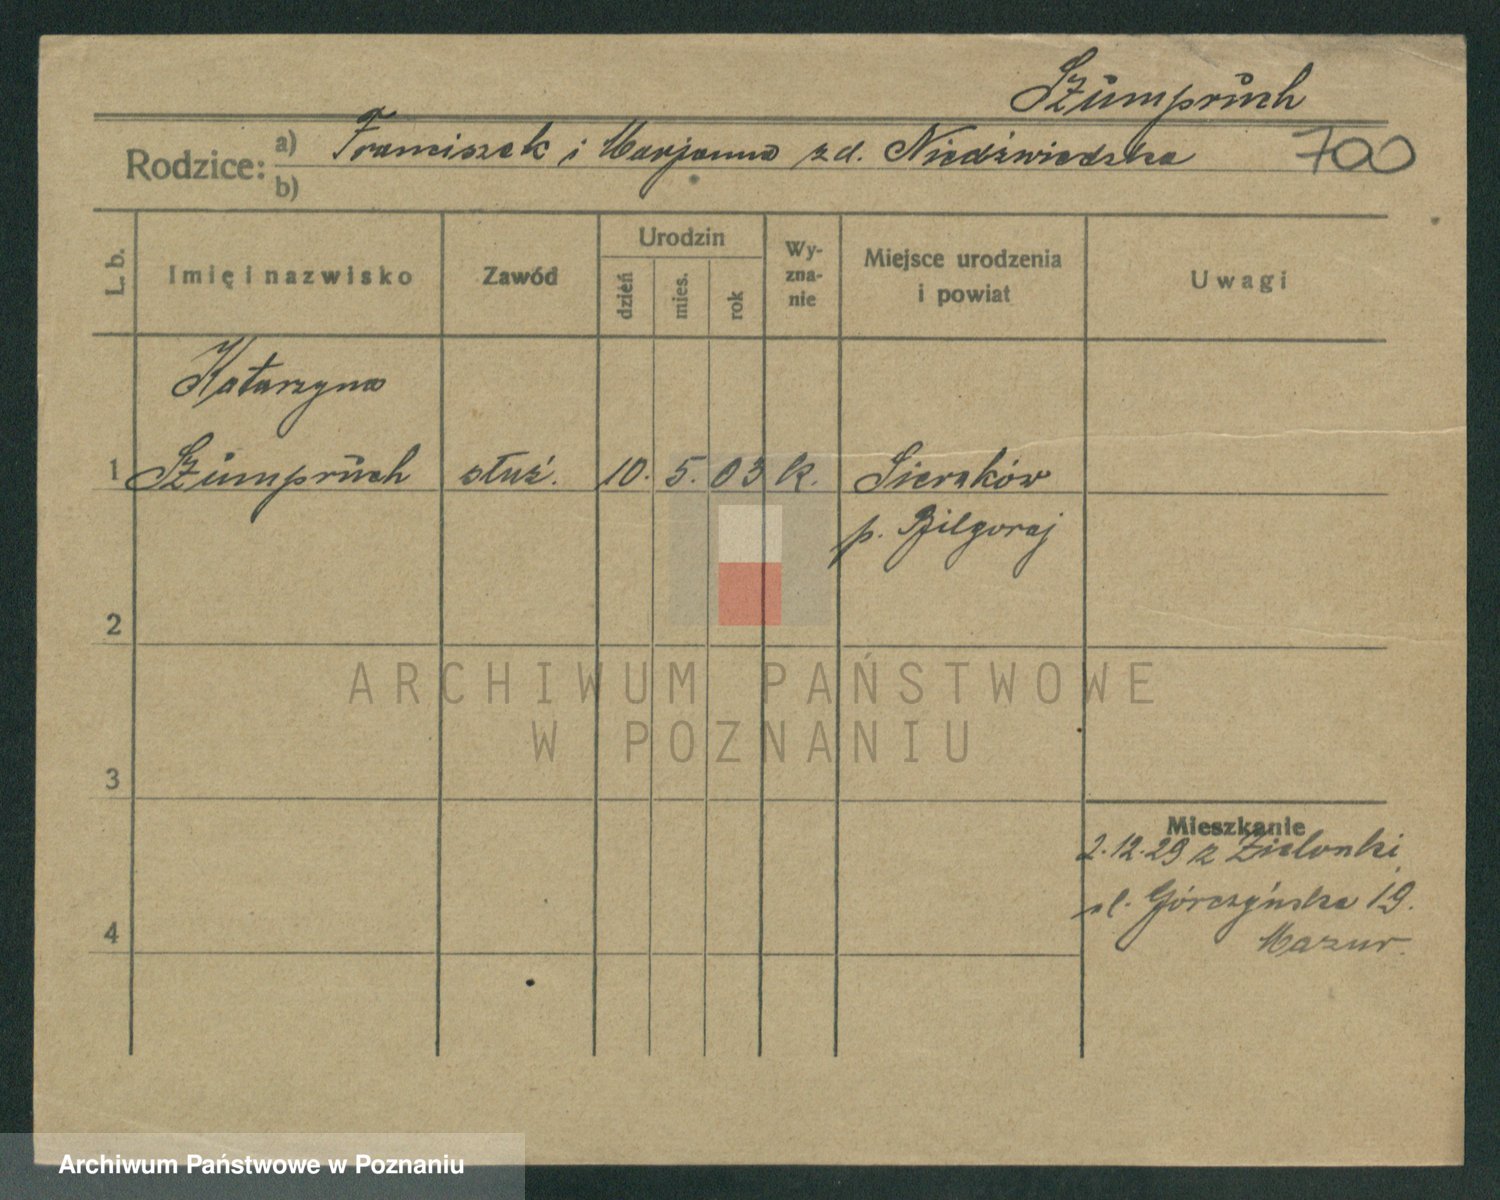 Szumpruch
Rodzice: a) Franciszek i Marjanna zd. Niedźwiedzka 700
b)
L. b. Imię i nazwisko Zawód Urodzin dzień mies. rok Wyznanie Miejsce urodzenia i powiat Uwagi
Katarzyna
1 Szumpruch służ. 10. 5. 03 k. Sieraków
p. Biłgoraj
2
3
Mieszkanie
2.12.29 z Zielonki
4 ul. Górczyńska 19.
Mazur.
ARCHIWUM PAŃSTWOWE
W POZNANIU
Archiwum Państwowe w Poznaniu